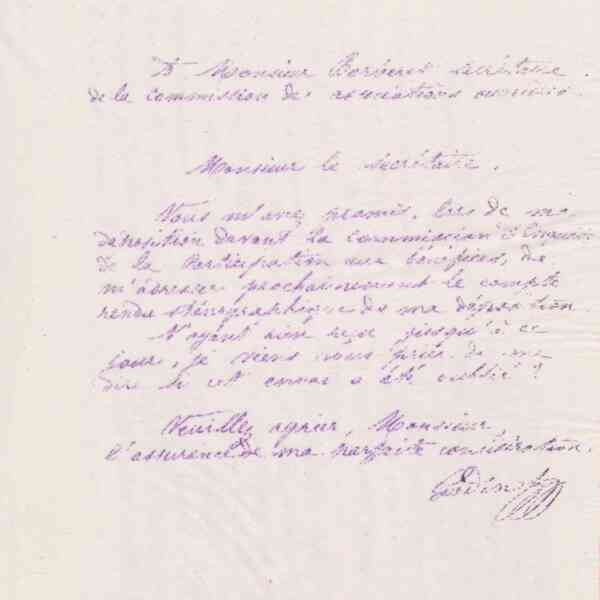 À Monsieur Barberet secrétaire
de la commission des associations ouvrières.
Monsieur le secrétaire,
Vous m'avez promis, lors de ma
déposition devant la commission d'Enquête
de la Participation aux bénéfices, de
m'adresser prochainement le compte
rendu sténographique de ma déposition.
N'ayant rien reçu jusqu'à ce
jour, je viens vous prier de me
dire si cet envoi a été oublié ?
Veuillez agréer, Monsieur,
l'assurance de ma parfaite considération.
Godin